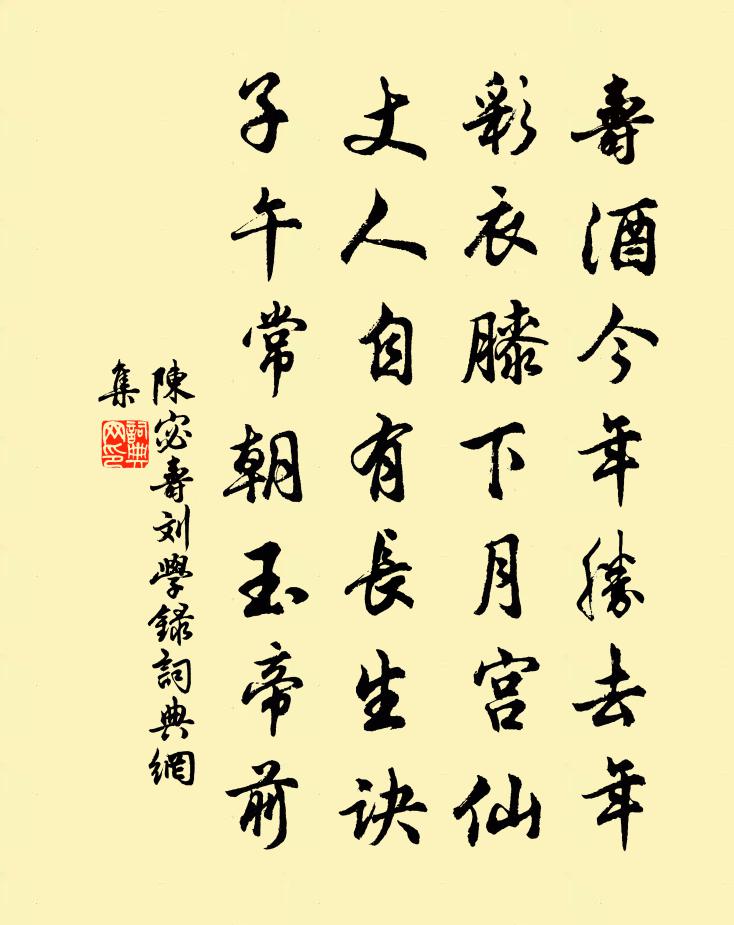 壽酒今年勝去年
彩衣膝下月宫仙
丈人自有長生訣
子午常朝玉帝前
陳宓壽刘學録詞典網
集
詞典
网印